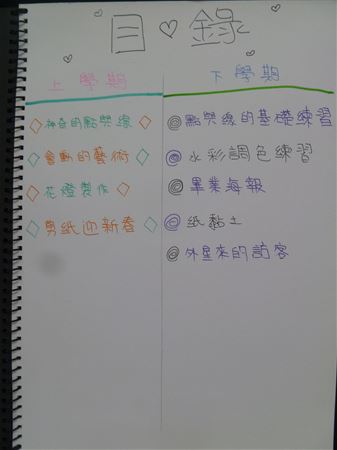 目錄
上學期
神奇的點與線
會動的藝術
花燈製作
剪紙迎新春
下學期
點與線的基礎練習
水彩調色練習
畢業海報
紙黏土
外星來的訪客